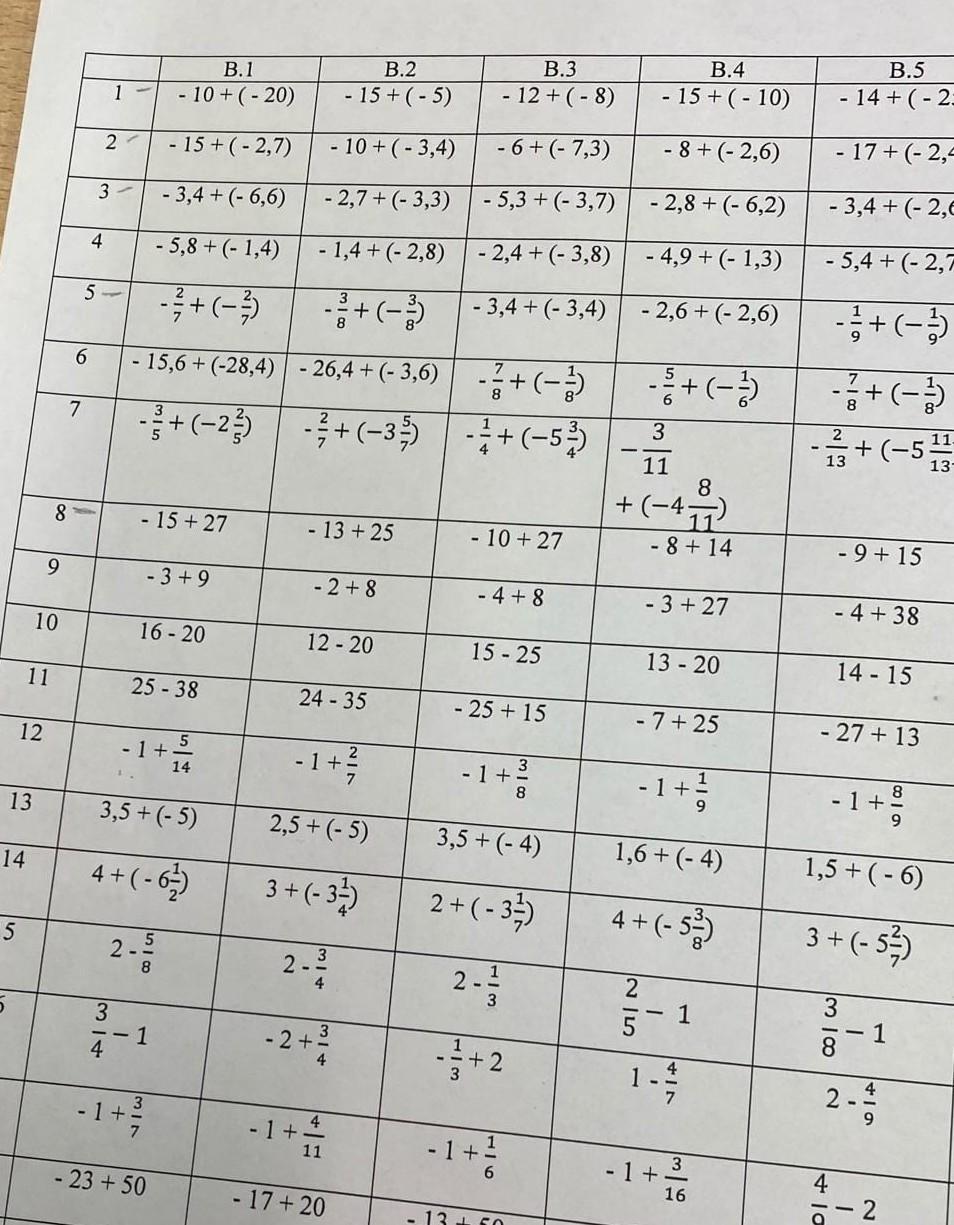 B.1 B.2 B.3 B.4 B.5
1 - 10 + ( - 20) - 15 + ( - 5) - 12 + ( - 8) - 15 + ( - 10) - 14 + ( - 2
2 - 15 + ( - 2,7) - 10 + ( - 3,4) - 6 + ( - 7,3) - 8 + (- 2,6) - 17 + (- 2,4
3 - 3,4 + (- 6,6) - 2,7 + (- 3,3) - 5,3 + (- 3,7) - 2,8 + (- 6,2) - 3,4 + (- 2,6
4 - 5,8 + (- 1,4) - 1,4 + (- 2,8) - 2,4 + (- 3,8) - 4,9 + (- 1,3) - 5,4 + (- 2,7
5 - 2/7 + (− 2/7) - 3/8 + (− 3/8) - 3,4 + (- 3,4) - 2,6 + (- 2,6) - 1/9 + (− 1/9)
6 - 15,6 + (-28,4) - 26,4 + (- 3,6) - 7/8 + (− 1/8) - 5/6 + (− 1/6) - 7/8 + (− 1/8)
7 - 3/5 + (−2 2/5) - 2/7 + (−3 5/7) - 1/4 + (−5 3/4) − 3/11 + (−4 8/11) - 2/13 + (−5 11/13
8 - 15 + 27 - 13 + 25 - 10 + 27 - 8 + 14 - 9 + 15
9 - 3 + 9 - 2 + 8 - 4 + 8 - 3 + 27 - 4 + 38
10 16 - 20 12 - 20 15 - 25 13 - 20 14 - 15
11 25 - 38 24 - 35 - 25 + 15 - 7 + 25 - 27 + 13
12 - 1 + 5/14 - 1 + 2/7 - 1 + 3/8 - 1 + 1/9 - 1 + 8/9
13 3,5 + (- 5) 2,5 + (- 5) 3,5 + (- 4) 1,6 + (- 4) 1,5 + ( - 6)
14 4 + ( - 6 1/2) 3 + (- 3 1/4) 2 + ( - 3 1/7) 4 + (- 5 3/8) 3 + (- 5 2/7)
5 2 - 5/8 2 - 3/4 2 - 1/3 2/5 − 1 3/8 − 1
3/4 − 1 - 2 + 3/4 - 1/3 + 2 1 - 4/7 2 - 4/9
- 1 + 3/7 - 1 + 4/11 - 1 + 1/6 - 1 + 3/16 4/9 − 2
- 23 + 50 - 17 + 20 - 13 + 50